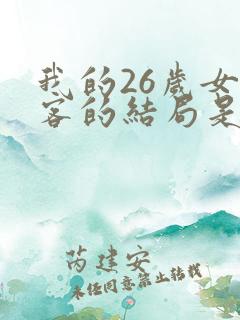 我的26歲女
客的結局是
芮建安
未经同意禁止转载